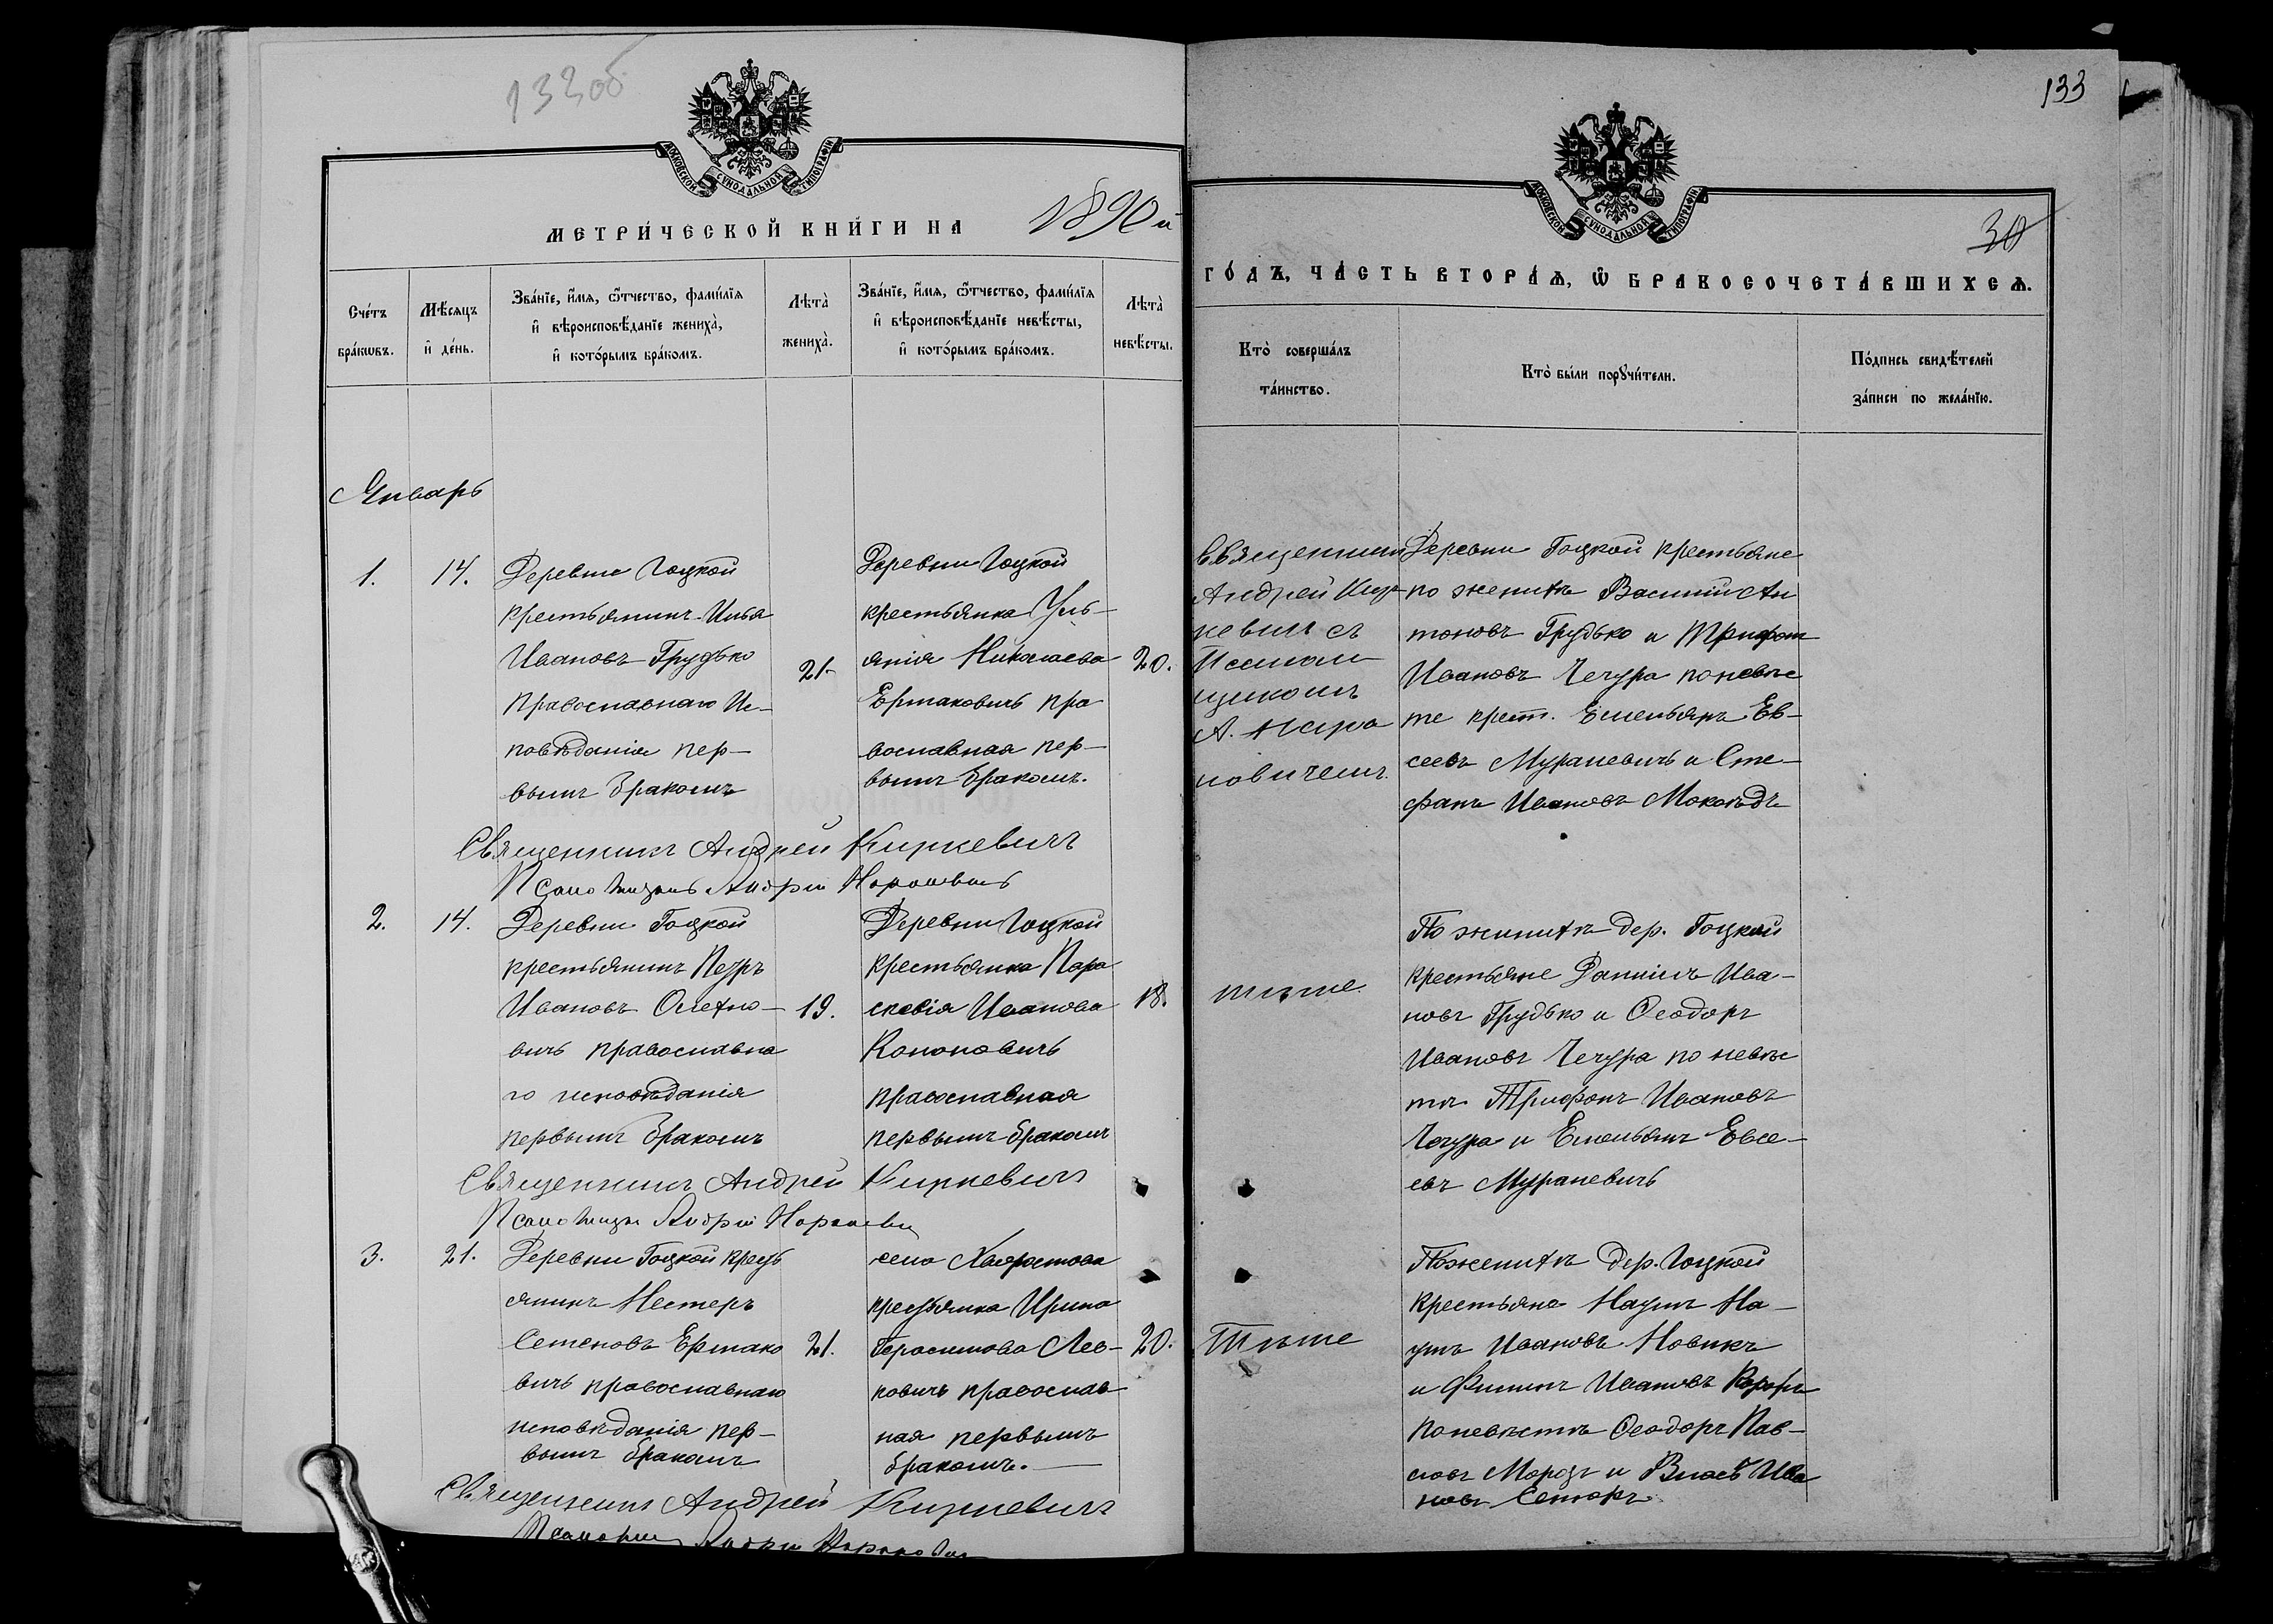 132об
МОСКОВСКОЙ СѴНОДАЛЬНОЙ ТИПОГРАФІИ
МЕТРИ́ЧЕСКОЙ КНИ́ГИ НА 1890й
Сче́тъ бра́кѡвъ.
Мѣ́сяцъ и҆ де́нь.
Зва́нїе, и҆́мѧ, ѻ҆́тчество, фамѝлїѧ
и҆ вѣроисповѣ́данїе женихà,
и҆ кото́рымъ бра́комъ.
Лѣтà женихà.
Зва́нїе, и҆́мѧ, ѻ҆́тчество, фамѝлїѧ
и҆ вѣроисповѣ́данїе невѣ́сты,
и҆ кото́рымъ бра́комъ.
Лѣтà невѣ́сты.
Январь
1.
14.
Деревни Гоцкой
крестьянинъ Илья
Ивановъ Грудько
православнаго Ис-
повѣданія пер-
вымъ бракомъ
21.
Деревни Гоцкой
крестьянка Уль-
янія Николаева
Ермаковичъ пра
вославная пер-
вымъ бракомъ.
20.
Священникъ Андрей Киркевичъ
Псаломщикъ Андрей
2.
14.
Деревни Гоцкой
крестьянинъ Петръ
Ивановъ
вичъ православна
го исповѣданія
первымъ бракомъ
19.
Деревни Гоцкой
крестьянка Пара
скевія Иванова
Кононовичъ
православная
первымъ бракомъ
18.
Священникъ Андрей Киркевичъ
Псаломщикъ Андрей
3.
21.
Деревни Гоцкой кресть
янинъ Нестеръ
Семеновъ Ермако
вичъ православнаго
исповѣданія пер-
вымъ бракомъ
21.
села Хворостова
крестьянка Ирина
Герасимова Лев-
ковичъ православ
ная первымъ
бракомъ.
20.
Священникъ Андрей Киркевичъ
Псаломщикъ Андрей
133
МОСКОВСКОЙ СѴНОДАЛЬНОЙ ТИПОГРАФІИ
30
ГО́ДЪ, ЧА́СТЬ ВТОРА́Ѧ, Ѡ҆ БРАКОСОЧЕТА́ВШИХСѦ.
Ктò соверша́лъ та́инство.
Ктò бы́ли порꙋчи́тели.
По́дпись свидѣ́телей за́писи по жела́нїю.
Священникъ
Андрей Кир-
кевичъ съ
Псалом
щикомъ
А. Наро
новичемъ.
Деревни Гоцкой крестьяне
по женихѣ Василій Ан
тоновъ Грудько и Трифонъ
Ивановъ Чечура по невѣс
те крест. Емельянъ Ев-
сеевъ Мураневичъ и Сте-
фанъ Ивановъ
тѣже.
По женихѣ дер. Гоцкой
крестьяне Даніилъ Ива-
новъ Грудько и Ѳеодоръ
Ивановъ Чечура по невѣс
тѣ Трифонъ Ивановъ
Чечура и Емельянъ Евсе-
евъ Мураневичъ
Тѣже
По женихѣ дер. Гоцкой
крестьяне Наумъ На-
умъ Ивановъ Новикъ
и Филиппъ Ивановъ
по невѣстѣ Ѳеодоръ Пав-
ловъ Морозъ и Власъ Ива
новъ